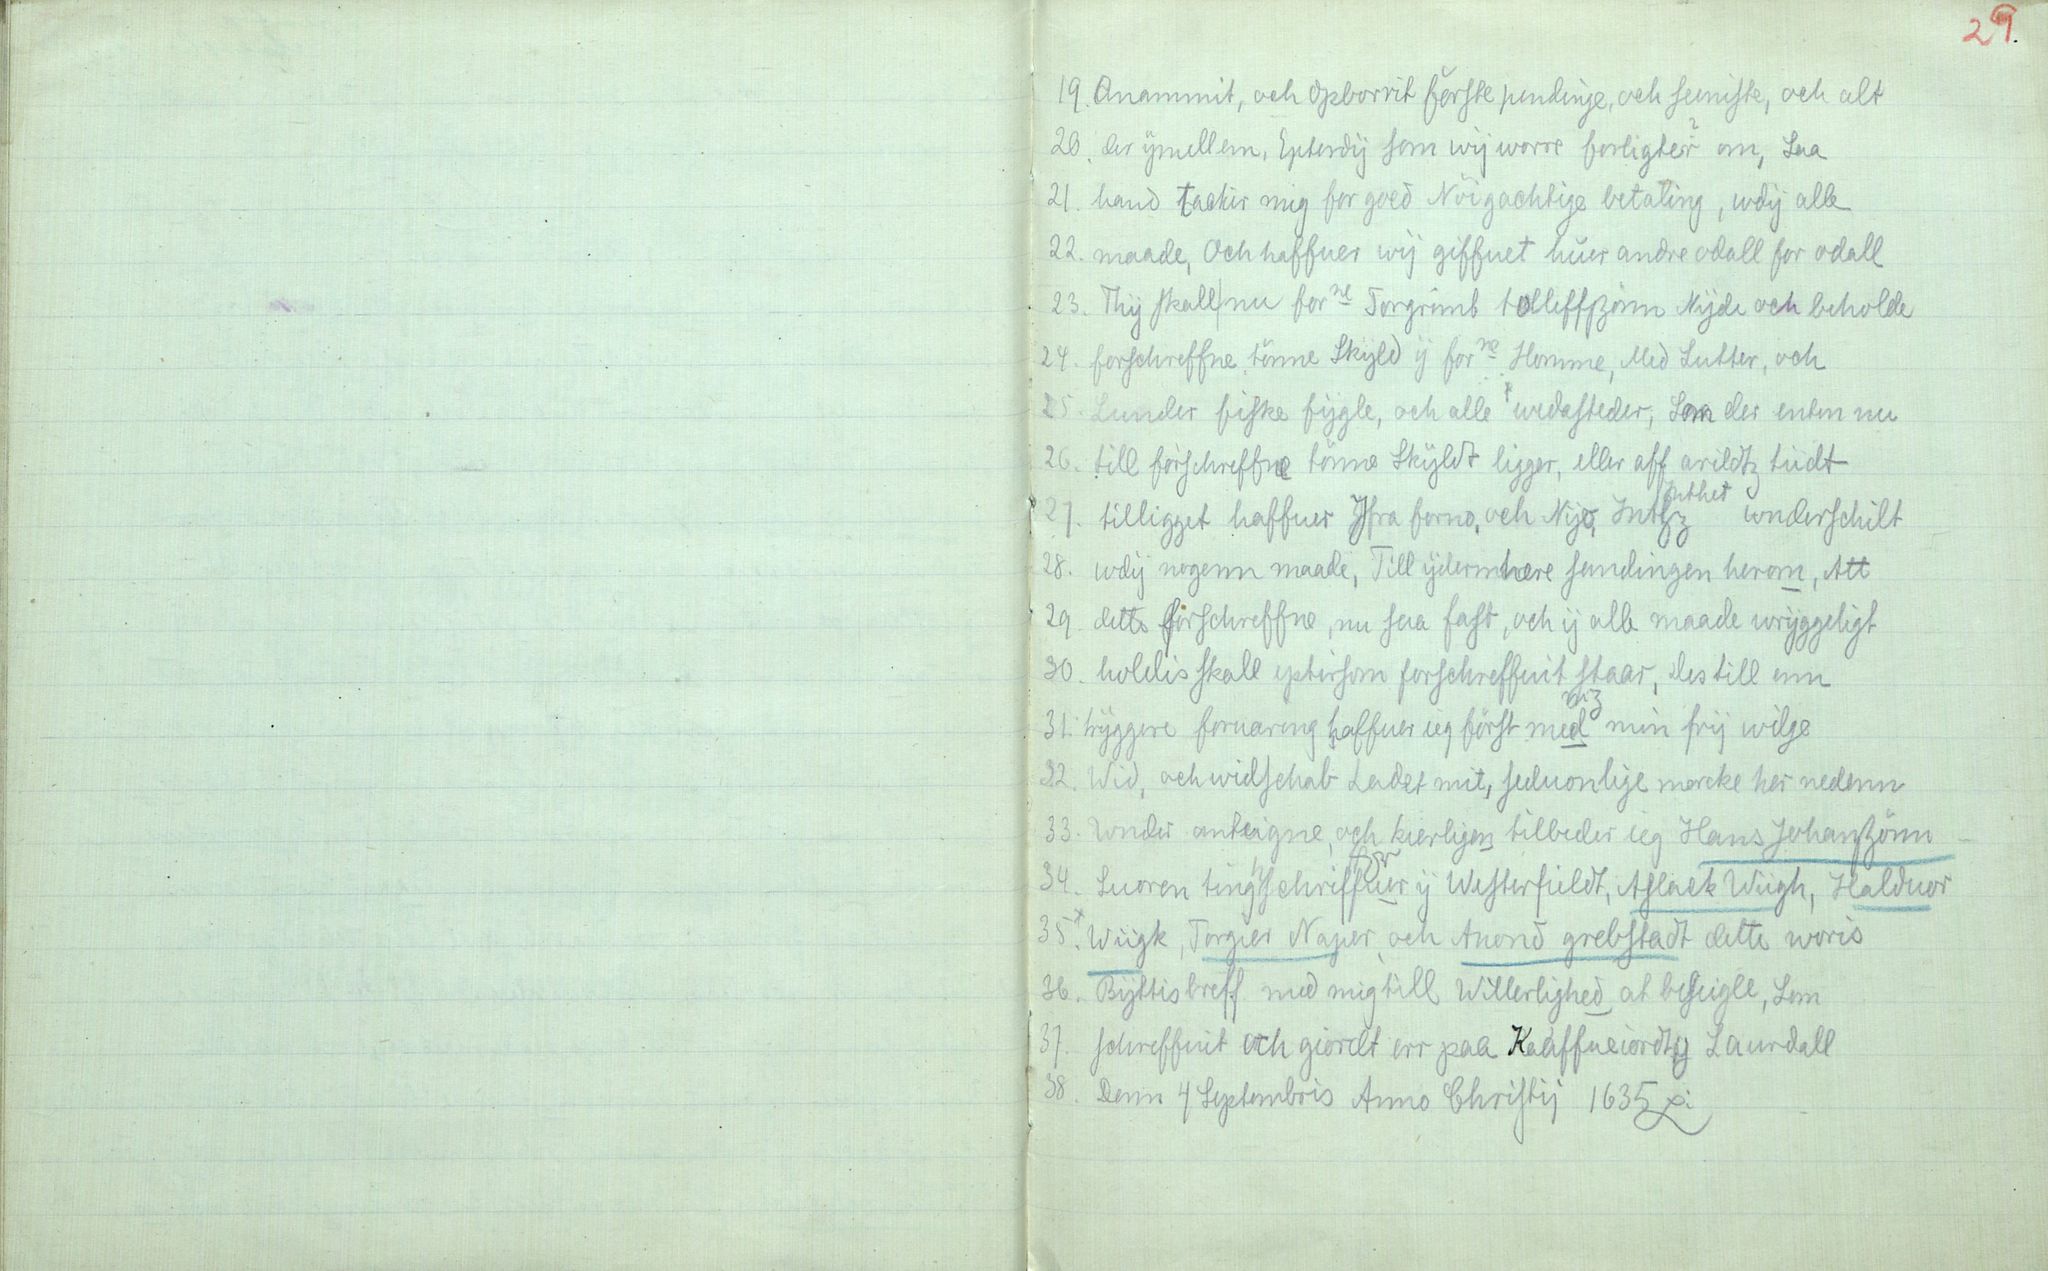 29.
19. Anammit, och Opborrit förste pendinge, och seeniste, och alt
20. der ÿmellem, Epterdij som wij worre forligter? om, Saa
21. hand tacker mig for goed Nöigachtige betaling, wdij alle
22. maade, Och haffuer wij giffuet huer andre odall for odall
23. Thij skall nu forne Torgrimb tolleffszönn Nyde och beholde
24. forschreffne tönne Skyld ÿ forne Homme, Med Lutter, och
25. Lunder fiske fÿgle, och alle wedasteder, Som der enten nu
26. till forschreffne tönne Skyldt ligger, eller aff arildtz tiidt
27. tilligget haffuer Ifra forno, och Nÿe, Inthz Inthet wnderschilt
28. wdij nogenn maade, Till ÿdermhere sandingen herom, Att
29. dette forschreffne, nu saa fast, och ÿ alle maade wrÿggeligt
30. holdis skall eptersom forschreffuit staar, des till enn
31. trÿggere foruaring haffuer ieg först med mz min frij wilge
32. Wid, och widschab Ladet mit, seduonlige mercke her nedenn
33. Wnder anteigne, och kierligen tilbeder ieg Hans Johanszönn
34. Suoren tingschriffuer for ÿ Westerfieldt, Aslack Wiigh, Halduor
35. x Wiigk, Torgier Naper, och Anond grebstadt dette woris
36. Bÿttis breff med mig till Witterlighed at beseigle, Som
37. schreffuit och giordt err paa Kaaffneiordt ÿ Laurdall
38. Denn 4 Septembris Anno Christij 1635